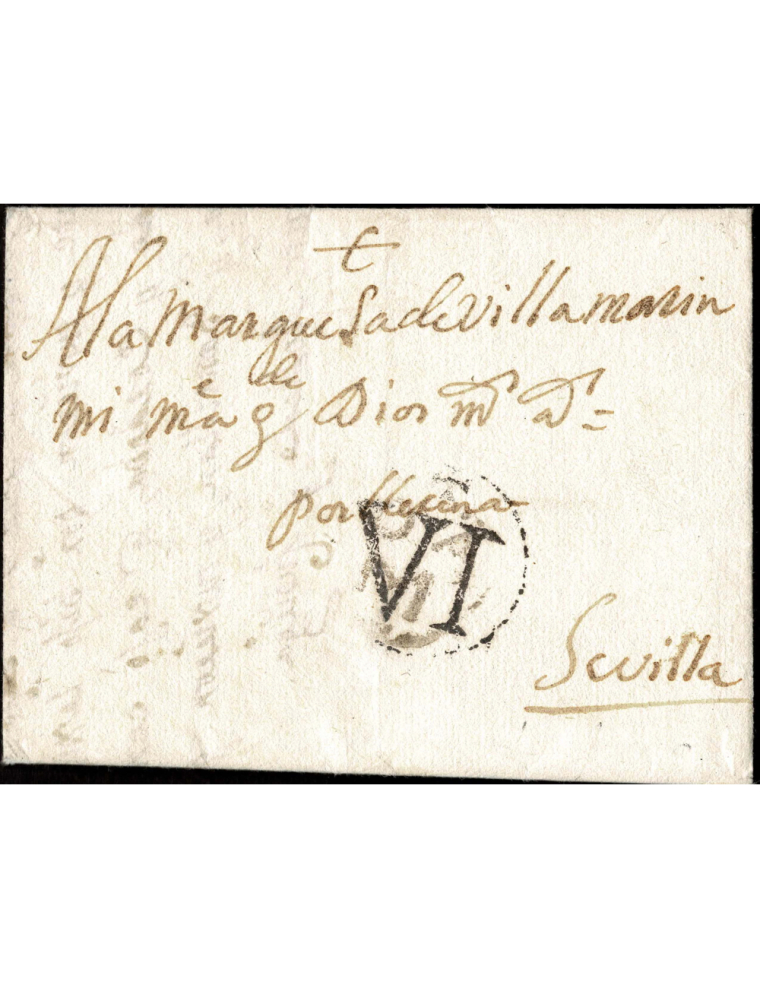 A la Marquesa de Villamarin
mi m̃a g de Dios ms as =
por
VI
Sevilla